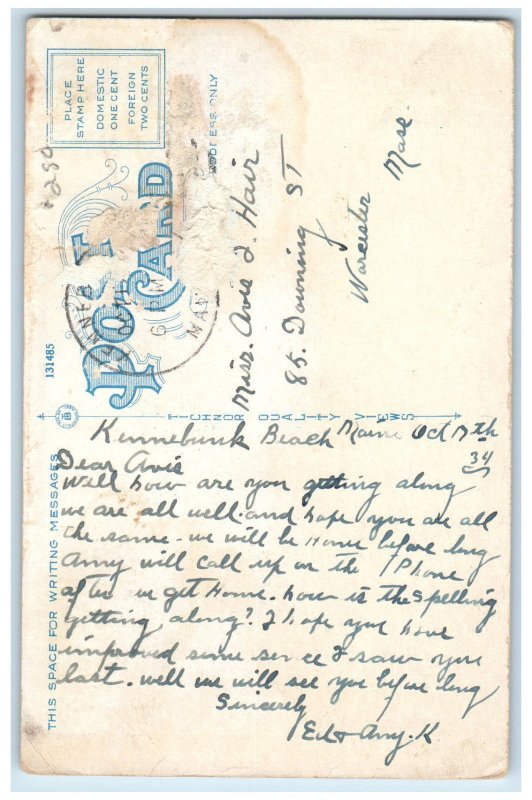 PLACE
STAMP HERE
DOMESTIC
ONE CENT
FOREIGN
TWO CENTS
1280
POST CARD
6 PM
ADDRESS ONLY
Miss. Avis L. Hair
85. Downing ST
Worcester
Mass.
131485
TICHNOR QUALITY VIEWS
THIS SPACE FOR WRITING MESSAGES
Kennebunk Beach Maine Oct 17th
34
Dear Avis
Well how are you getting along
we are all well. and hope you are all
the same - we will be Home before long
Amy will call up on the Phone
after we get Home. how is the Spelling
getting along? I hope you have
improved some sence I saw you
last. well we will see you before long
Sincerely
Ed & Amy. K